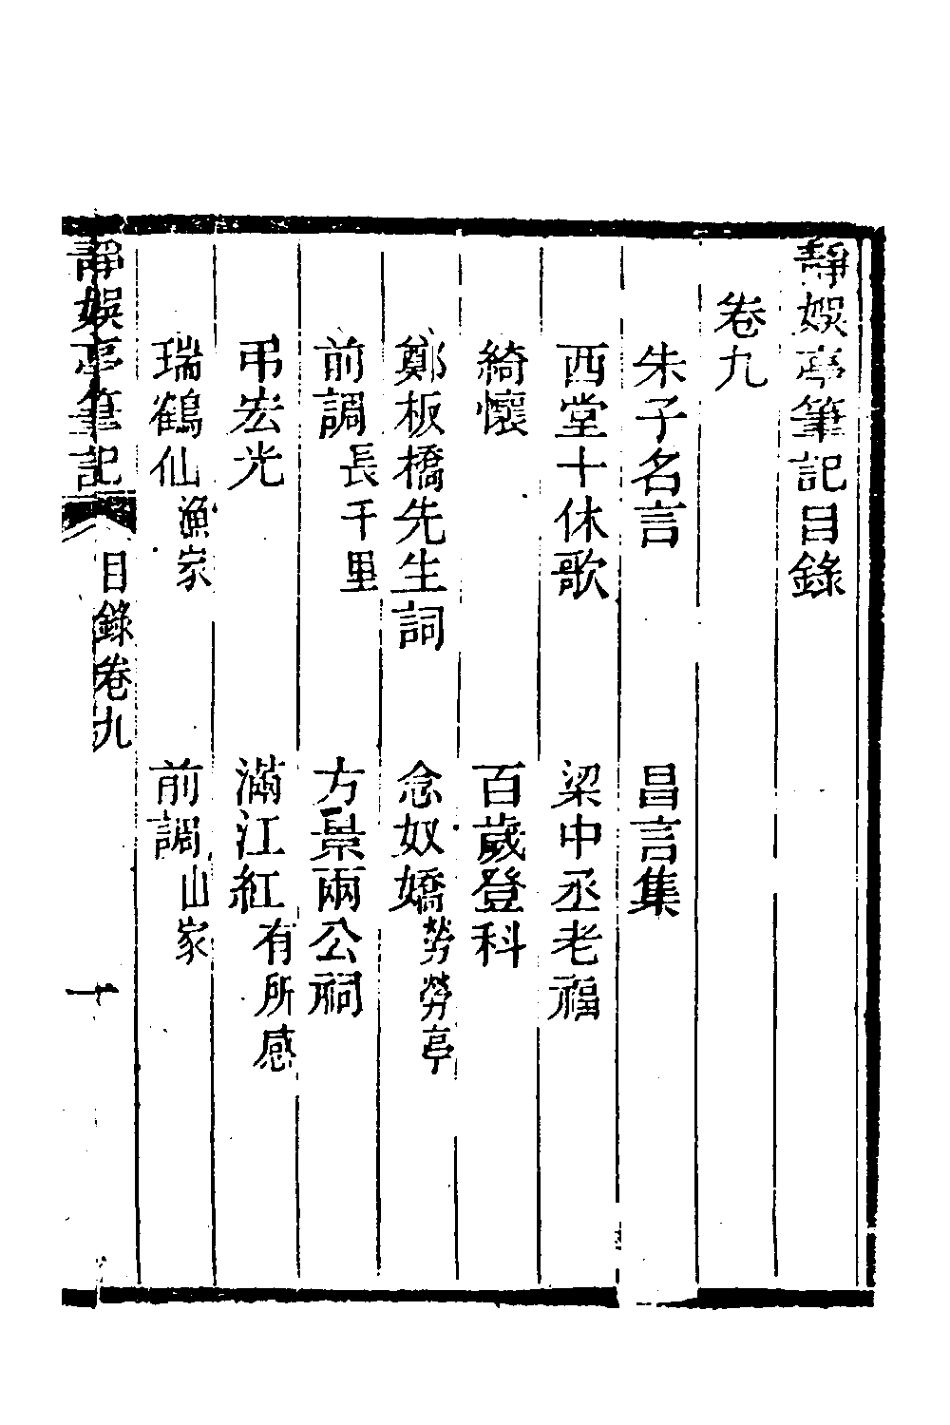 靜娛亭筆記目錄
卷九
朱子名言 昌言集
西堂十休歌 梁中丞老福
綺懷 百歲登科
鄭板橋先生詞 念奴嬌勞勞亭
前調長千里 方景兩公祠
弔宏光 滿江紅有所感
瑞鶴仙漁家 前調山家
靜娛亭筆記 目錄卷九 十